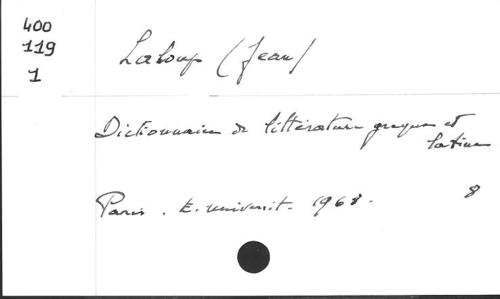 400
119
1
Laloup (Jean)
Dictionnaire de littérature grecque et
latine
Paris. E. universit. 1968.
8